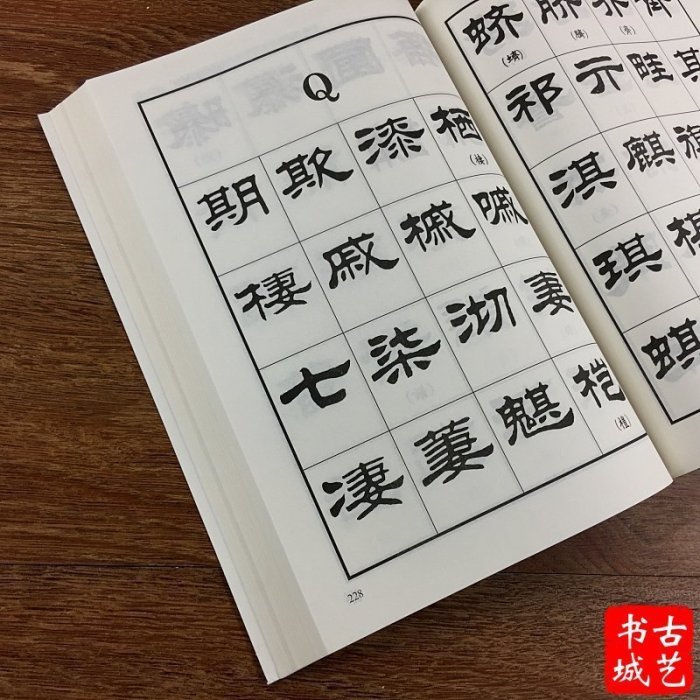 Q
期 欺 漆 栖
(棲)
棲 戚 槭 嘁
七 柒 沏 妻
凄 萋 魌 桤
(榿)
228
蛴 脐
(蠐) (臍)
祁 亓 畦 其
淇 麒 旗
琪
蜞
古艺
书城